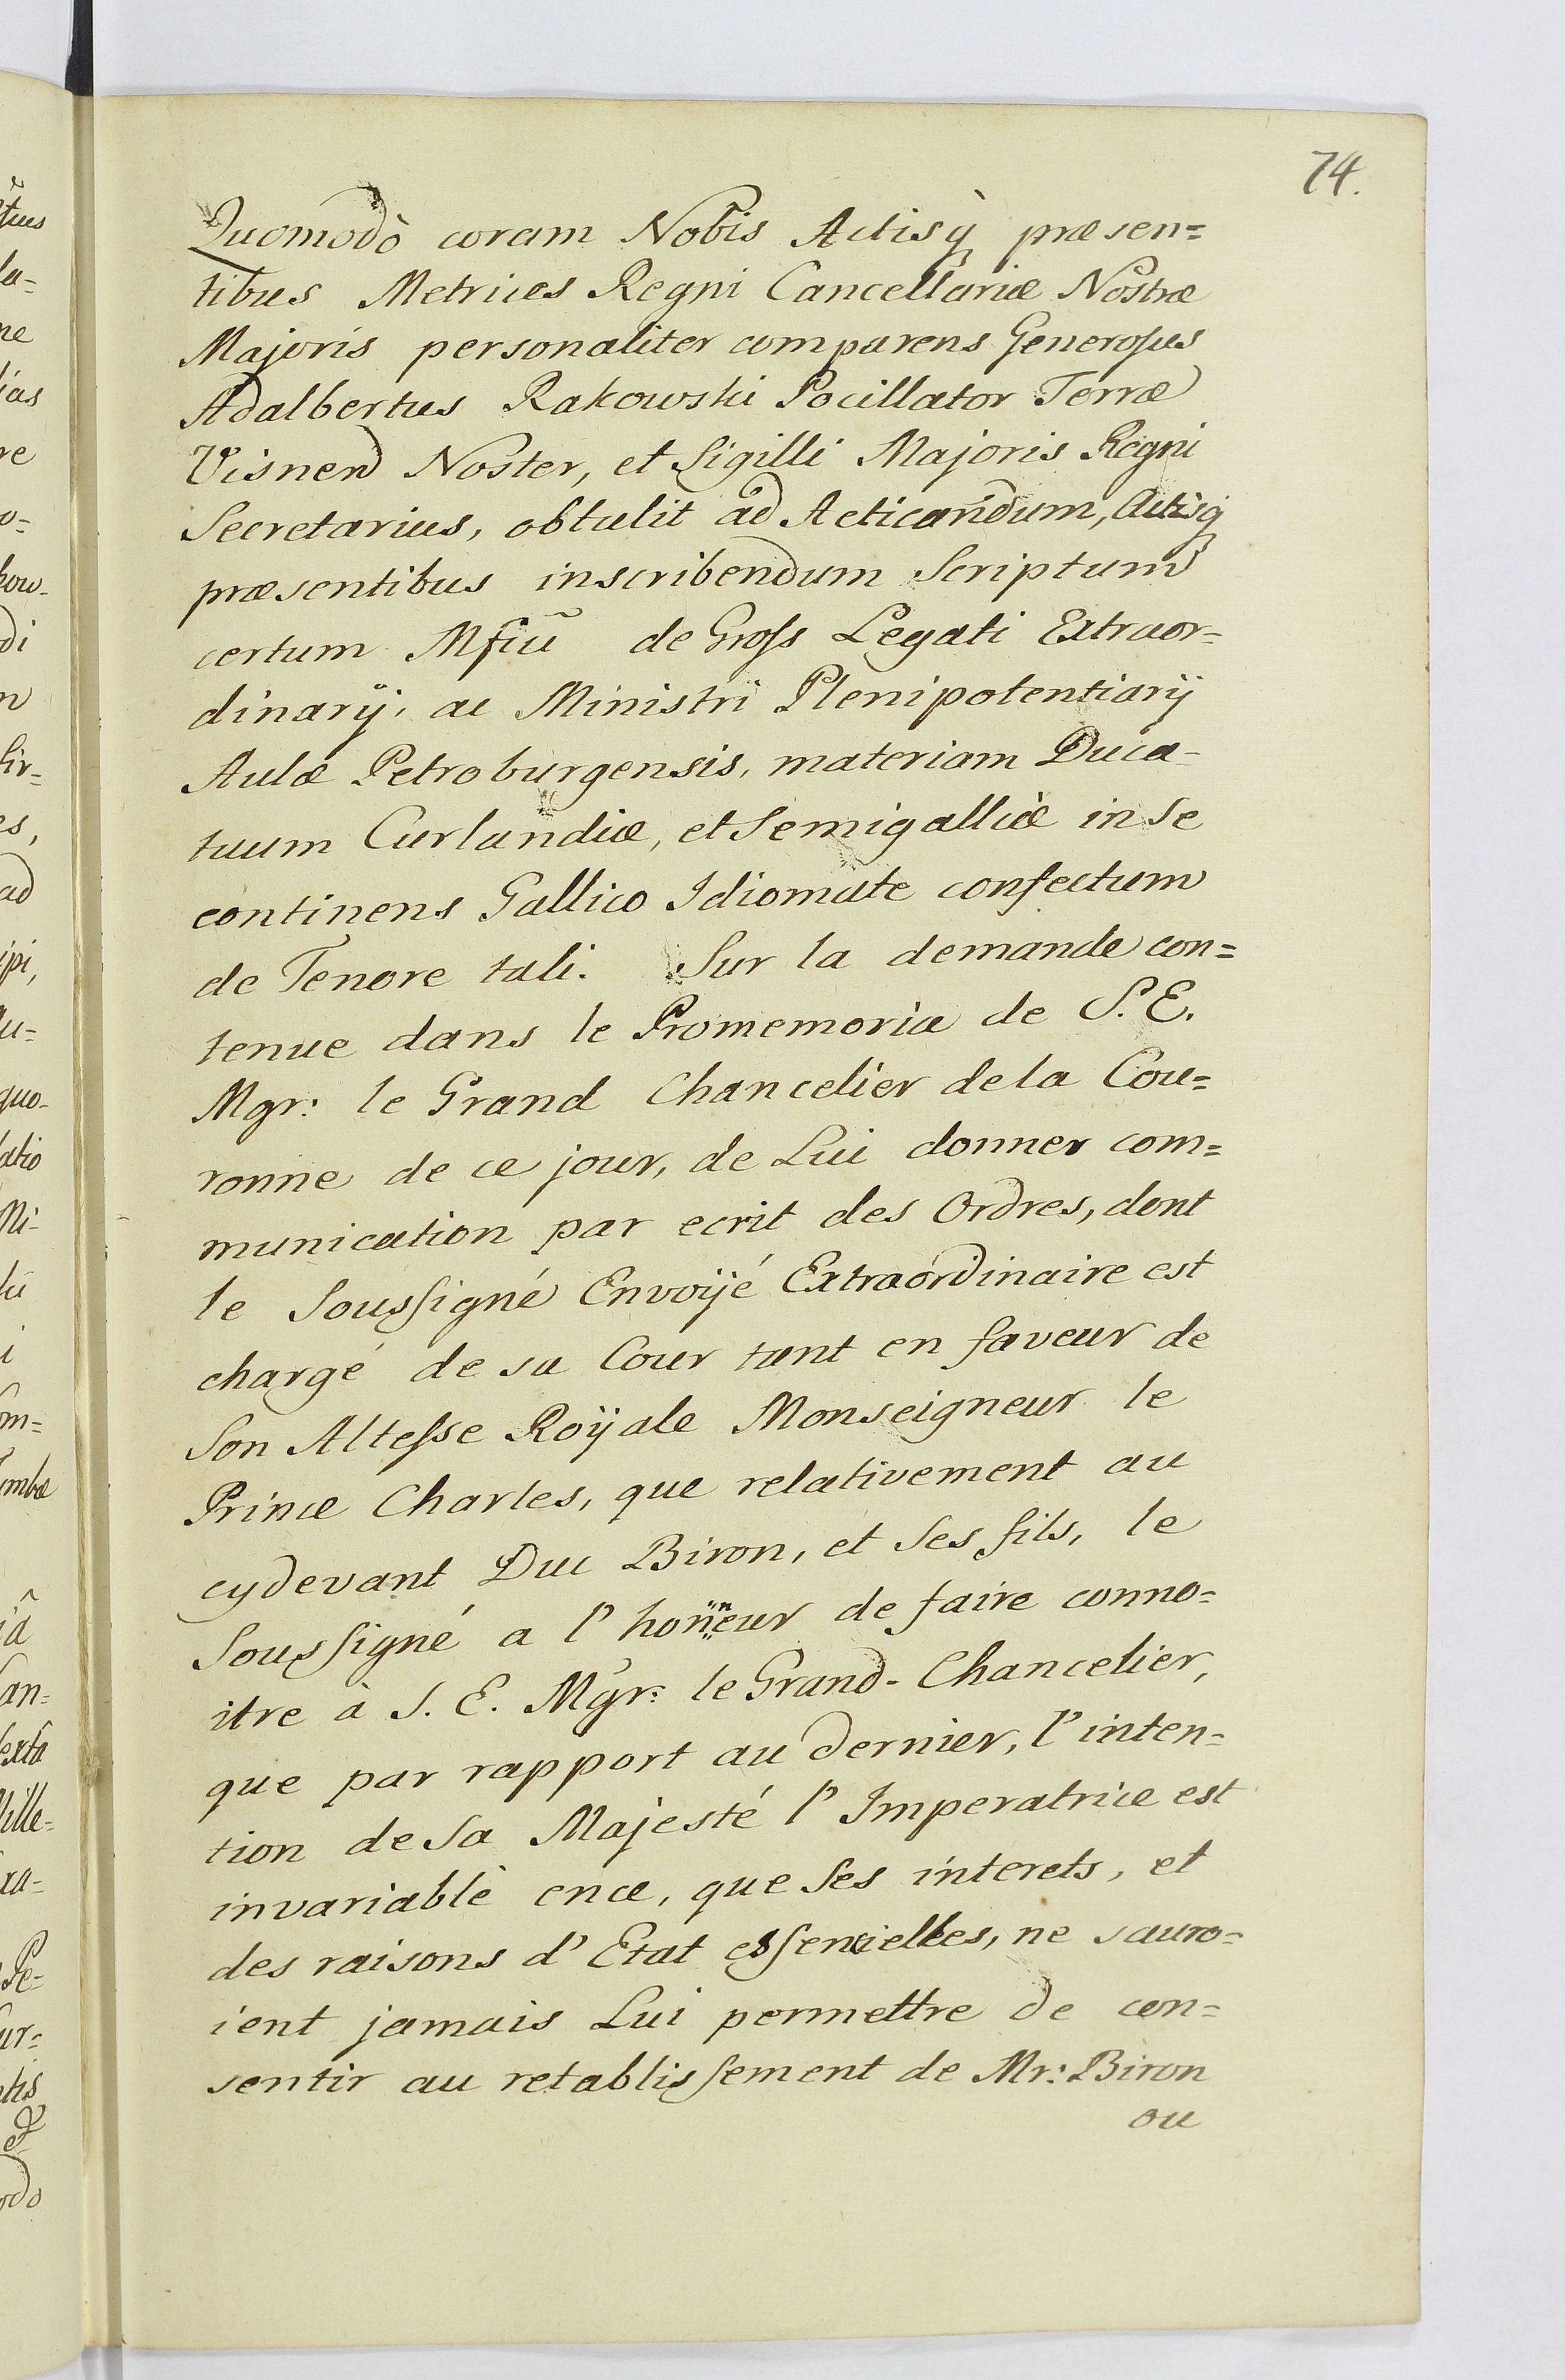 74.
Quomodò coram Nobis Actisq́ præsen=
tibus Metrices Regni Cancellariæ Nostræ
Majoris personaliter comparens Generosus
Adalbertus Rakowski Pocillator Terræ
Visnen Noster, et Sigilli Majoris Regni
Secretarius, obtulit ad Acticandum, Actisq́
præsentibus inscribendum Scriptum
certum Mfiũ de Gross Legati Extraor=
dinarÿ, ac Ministri Plenipotentiarÿ
Aulæ Petroburgensis, materiam Duca-
tuum Curlandiæ, et Semigalliæ in se
continens Gallico Idiomate confectum
de Tenore tali. Sur la demande con=
tenue dans le Promemoria de S. E.
Mgr: le Grand Chancelier de la Cou=
ronne de ce jour, de Lui donner com=
munication par ecrit des Ordres, dont
le Soussigné Envoÿé Extraordinaire est
chargé de sa Cour tant en faveur de
Son Altesse Roÿale Monseigneur le
Prince Charles, que relativement au
cydevant Duc Biron, et Ses fils, le
Soussigné a l' honneur de faire conno=
itre à S. E. Mgr: le Grand-Chancelier,
que par rapport au dernier, l' inten=
tion de Sa Majesté l' Imperatrice est
invariable ence, que Ses interets, et
des raisons d' Etat essencielles, ne sauro=
ient jamais Lui permettre de con=
sentir au retablissement de Mr: Biron
ou